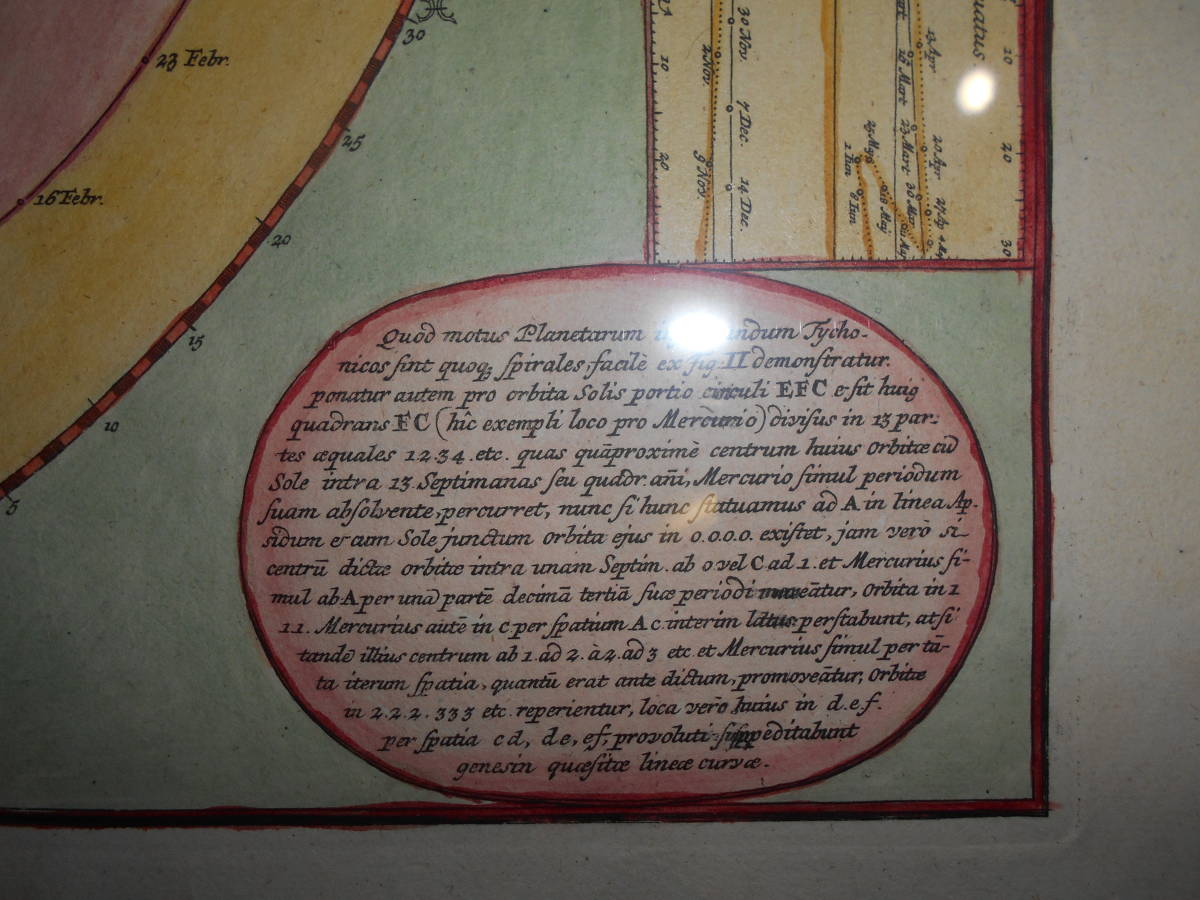 30
25
20
15
10
5
23 Febr.
16 Febr.
10
20
2 Nov.
9 Nov.
30 Nov.
7 Dec.
14 Dec.
16 Mart
23 Mart
30 Mar
13 Apr
20 Apr
27 Ap
4 May
25 May
1 Iun
8 Iun
18 May
uatus.
10
20
30
Quòd motus Planetarum undum Tycho-
nicos sint quoq; spirales, facilè ex fig. II demonstratur.
ponatur autem pro orbita Solis portio circuli EFC & sit huig
quadrans FC (hîc exempli loco pro Mercurio) divisus in 13 par-
tes æquales 1.2.3.4. etc. quas quāproximè centrum huius Orbitæ cū
Sole intra 13 Septimanas seu quadr. añi, Mercurio simul periodum
suam absolvente, percurret, nunc si hunc statuamus ad A in linea Ap-
sidum & cum Sole junctum Orbita ejus in 0.0.0.0. existet, jam verò si
centrū dictæ orbitæ intra unam Septim. ab 0 vel C ad 1. et Mercurius si-
mul ab A per unā partē decimā tertiā suæ periodi moveātur, Orbita in 1
1 1. Mercurius autē in c per spatium A c interim perstabunt, at si
tandē illius centrum ab 1. ad 2. à 2. ad 3 etc. et Mercurius simul per tā-
ta iterum spatia, quantū erat ante dictum, promoveātur, Orbitæ
in 2.2.2. 333 etc. reperientur, loca verò huius in d.e.f.
per spatia cd, de, ef, provoluti suppeditabunt
genesin quæsitæ lineæ curvæ.